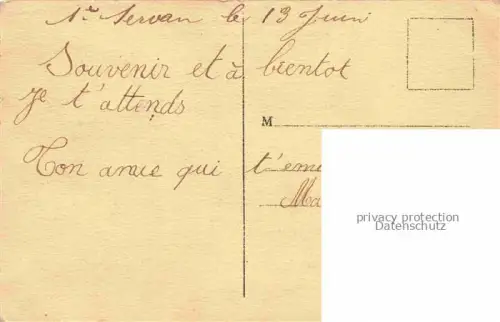 St Servan le 13 Juin
Souvenir et à bientot
Je t'attends
M
Ton amie qui t'em
Ma
privacy protection
Datenschutz